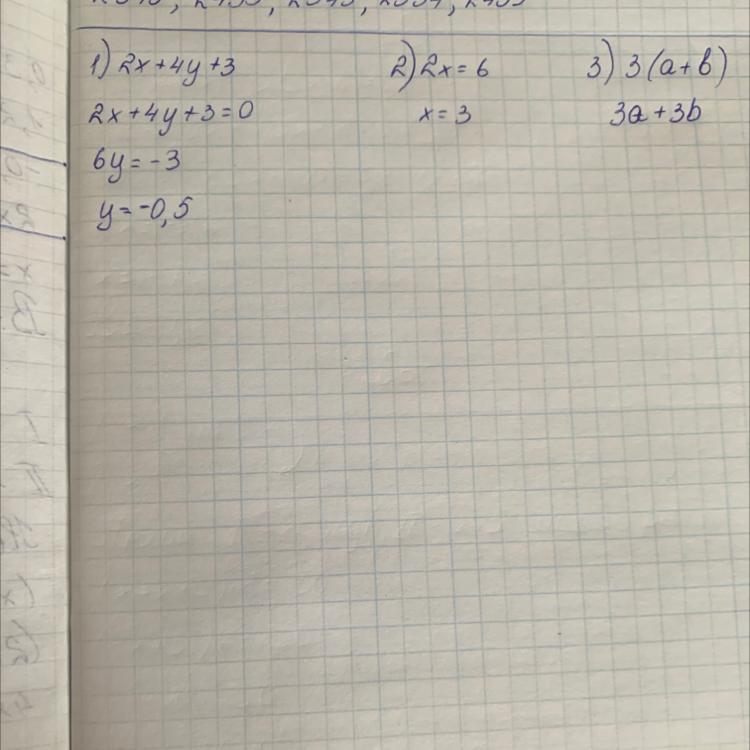 1) 2x+4y+3
2x+4y+3=0
6y=-3
y=-0,5
2) 2x=6
x=3
3) 3(a+b)
3a+3b